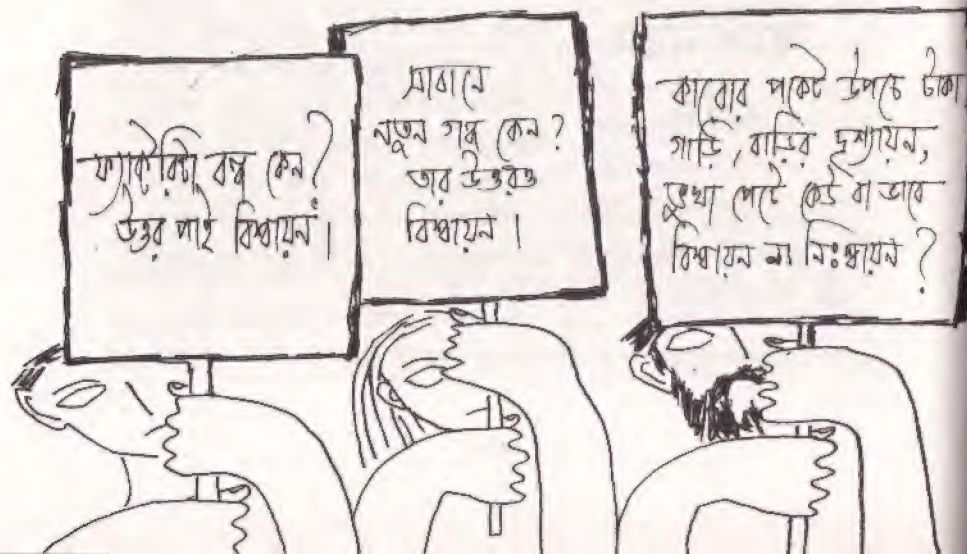 ফ্যাক্টরিটা বন্ধ কেন?
উত্তর পাই বিশ্বায়ন।
সাবানে
নতুন গন্ধ কেন?
তার উত্তরও
বিশ্বায়ন।
কারোর পকেট উপচে টাকা
গাড়ি, বাড়ির দৃশ্যায়ন,
ভুখা পেটে কেউ বা ভাবে
বিশ্বায়ন না নিঃস্বায়ন?